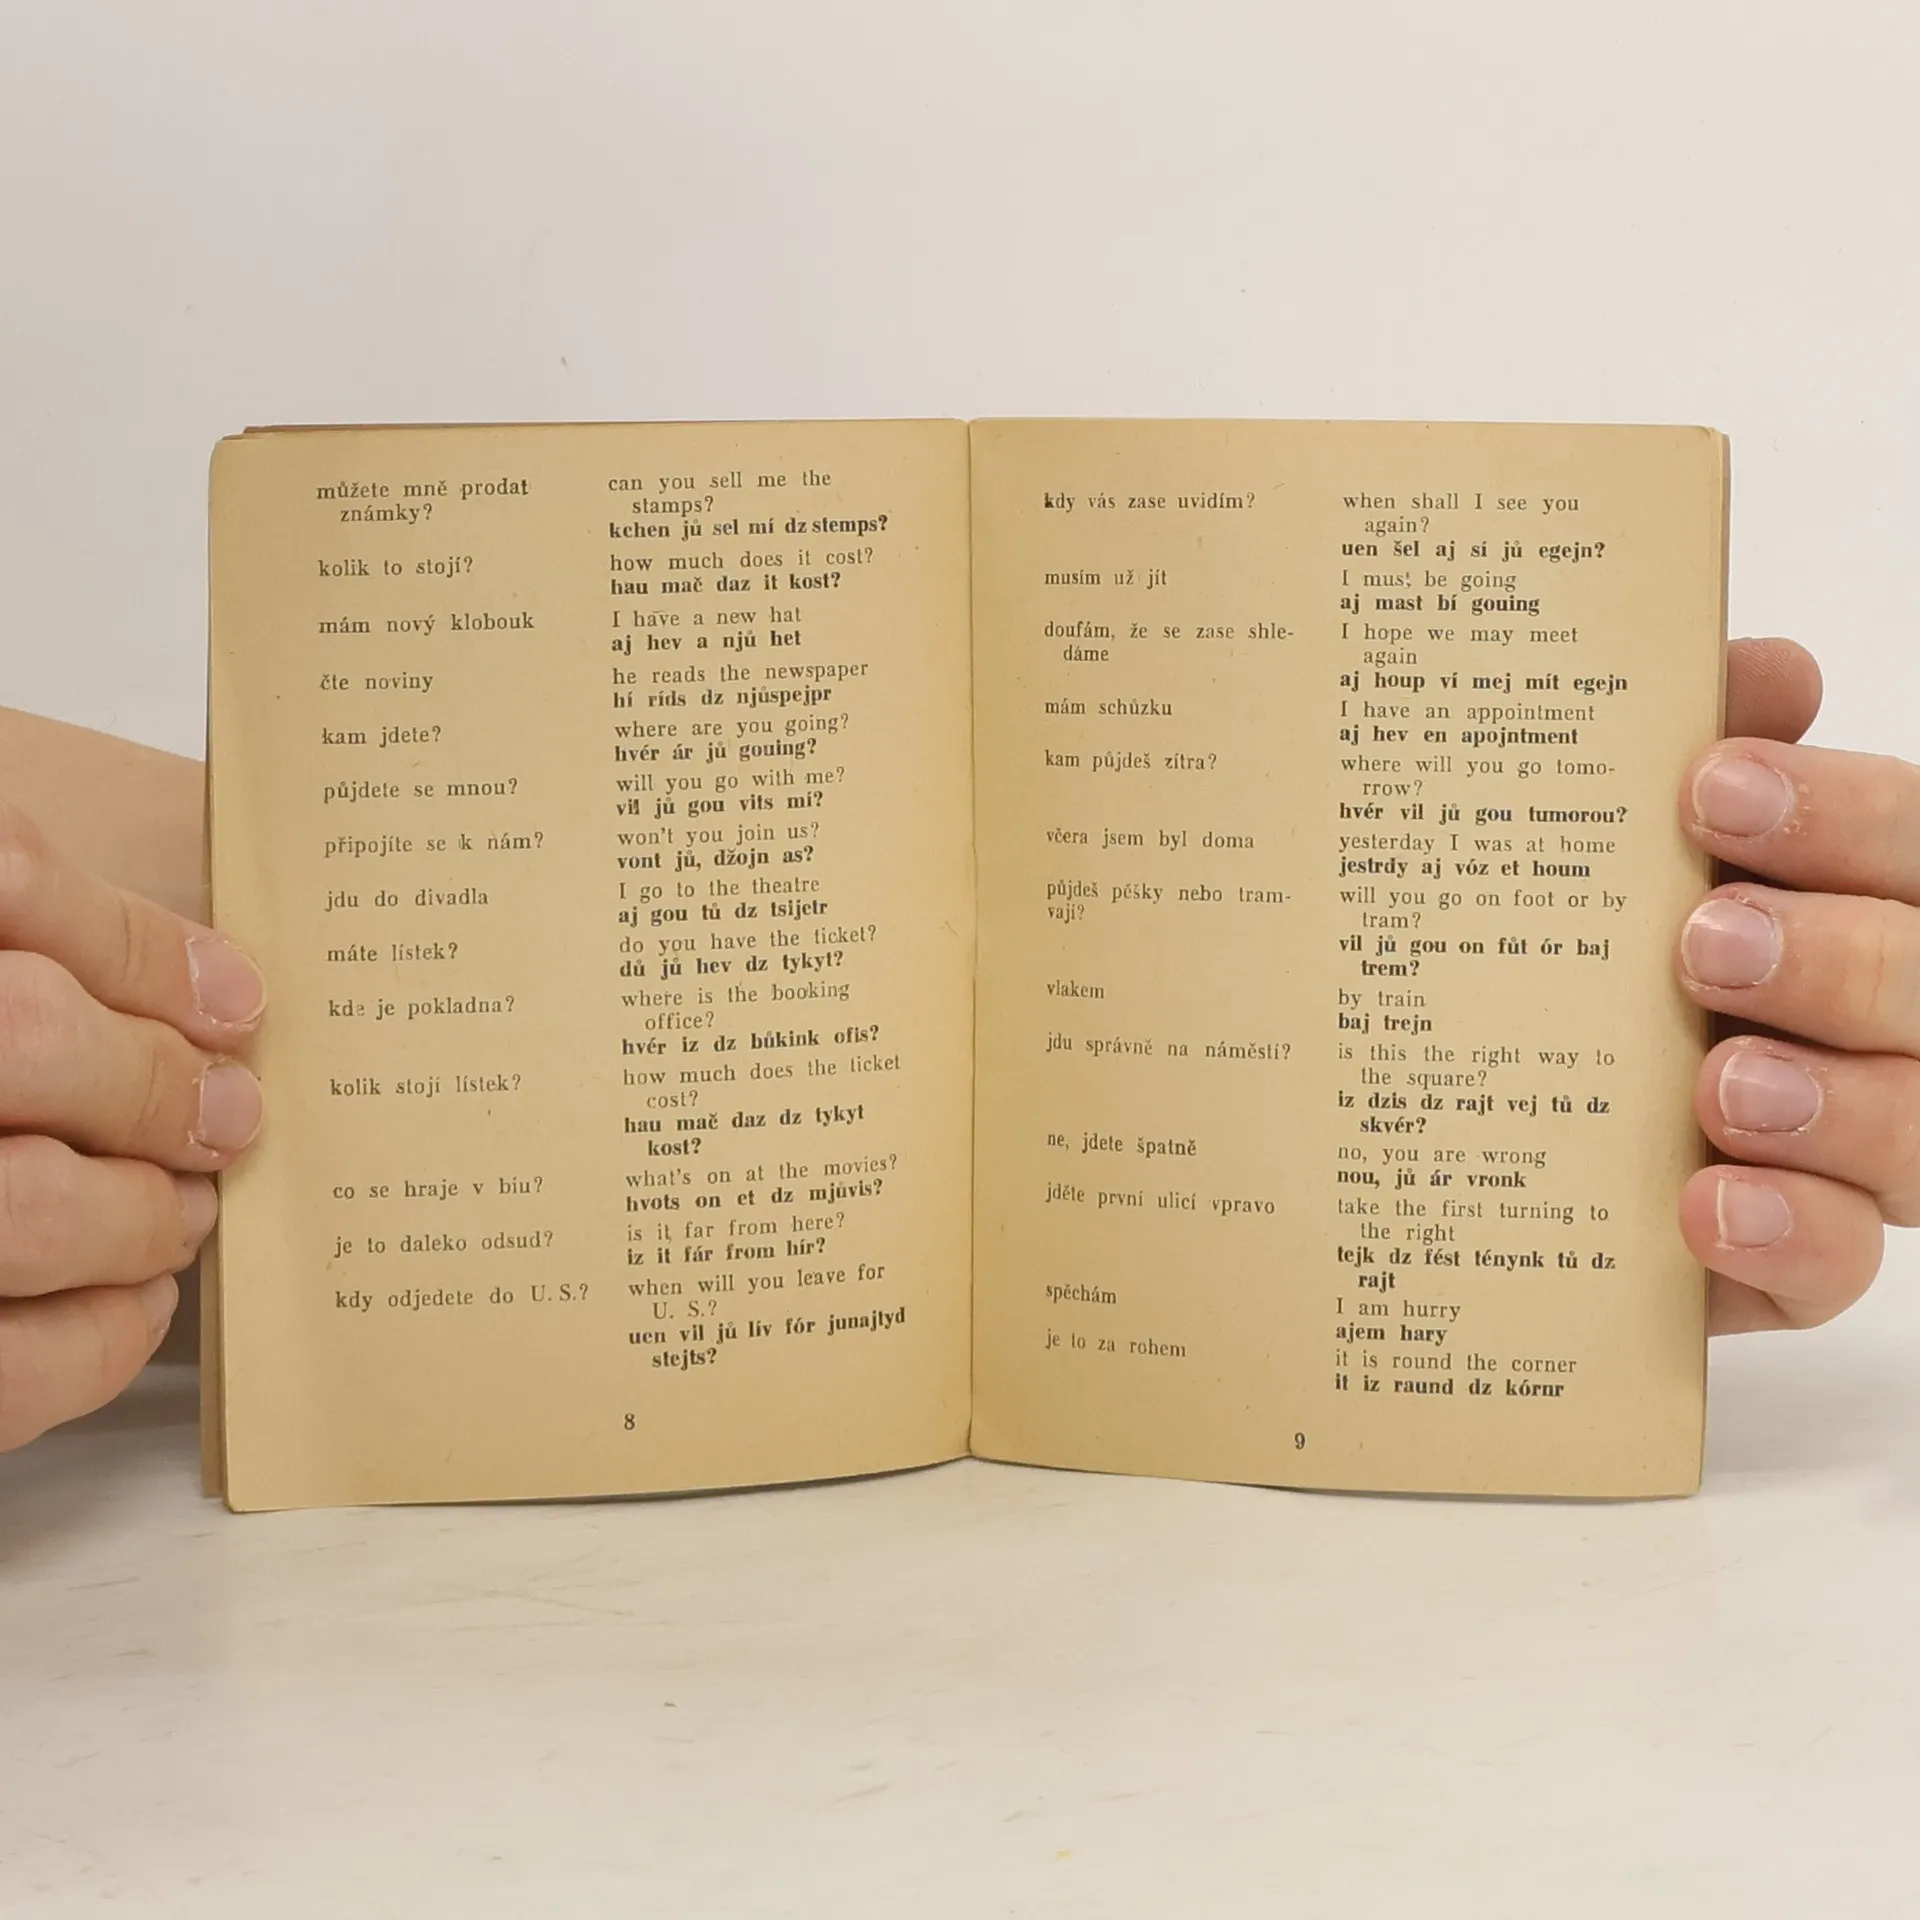 můžete mně prodat
známky?
can you sell me the
stamps?
kchen jů sel mí dz stemps?
kolik to stojí?
how much does it cost?
hau mač daz it kost?
mám nový klobouk
I have a new hat
aj hev a njů het
čte noviny
he reads the newspaper
hí ríds dz njůspejpr
kam jdete?
where are you going?
hvér ár jů gouing?
půjdete se mnou?
will you go with me?
vil jů gou vits mí?
připojíte se k nám?
won't you join us?
vont jů, džojn as?
jdu do divadla
I go to the theatre
aj gou tů dz tsijetr
máte lístek?
do you have the ticket?
dů jů hev dz tykyt?
kde je pokladna?
where is the booking
office?
hvér iz dz bůkink ofis?
kolik stojí lístek?
how much does the ticket
cost?
hau mač daz dz tykyt
kost?
co se hraje v biu?
what's on at the movies?
hvots on et dz mjůvis?
je to daleko odsud?
is it far from here?
iz it fár from hír?
kdy odjedete do U. S.?
when will you leave for
U. S.?
uen vil jů lív fór junajtyd
stejts?
8
kdy vás zase uvidím?
when shall I see you
again?
uen šel aj sí jů egejn?
musím už jít
I must be going
aj mast bí gouing
doufám, že se zase shle-
dáme
I hope we may meet
again
aj houp ví mej mít egejn
mám schůzku
I have an appointment
aj hev en apojntment
kam půjdeš zítra?
where will you go tomo-
rrow?
hvér vil jů gou tumorou?
včera jsem byl doma
yesterday I was at home
jestrdy aj vóz et houm
půjdeš pěšky nebo tram-
vají?
will you go on foot or by
tram?
vil jů gou on fůt ór baj
trem?
vlakem
by train
baj trejn
jdu správně na náměstí?
is this the right way to
the square?
iz dzis dz rajt vej tů dz
skvér?
ne, jdete špatně
no, you are wrong
nou, jů ár vronk
jděte první ulicí vpravo
take the first turning to
the right
tejk dz fést ténynk tů dz
rajt
spěchám
I am hurry
ajem hary
je to za rohem
it is round the corner
it iz raund dz kórnr
9